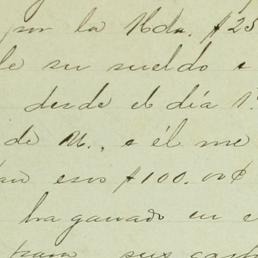 por la Hda. $25
de su sueldo e
desde el día 1º
de U., e él me
esos $100.00
ha ganado en e
para sus gast